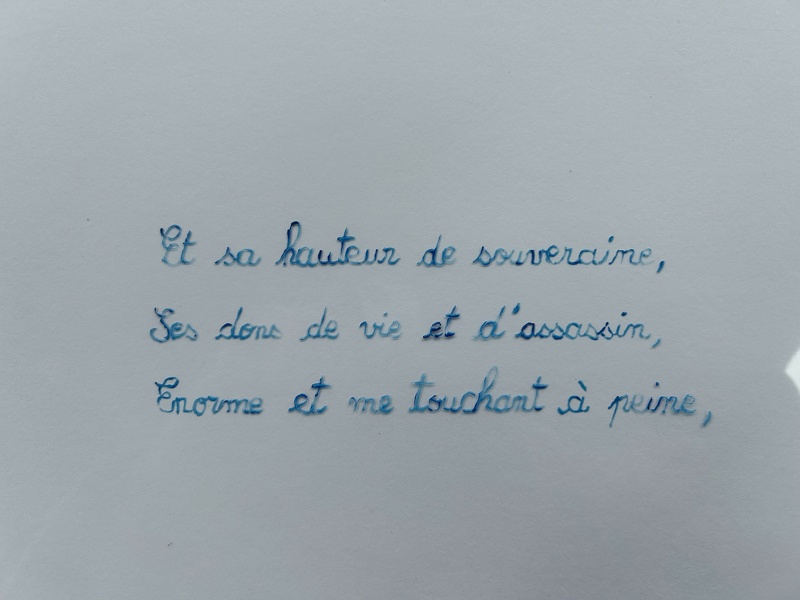 Et sa hauteur de souveraine,
Ses dons de vie et d'assassin,
Enorme et me touchant à peine,